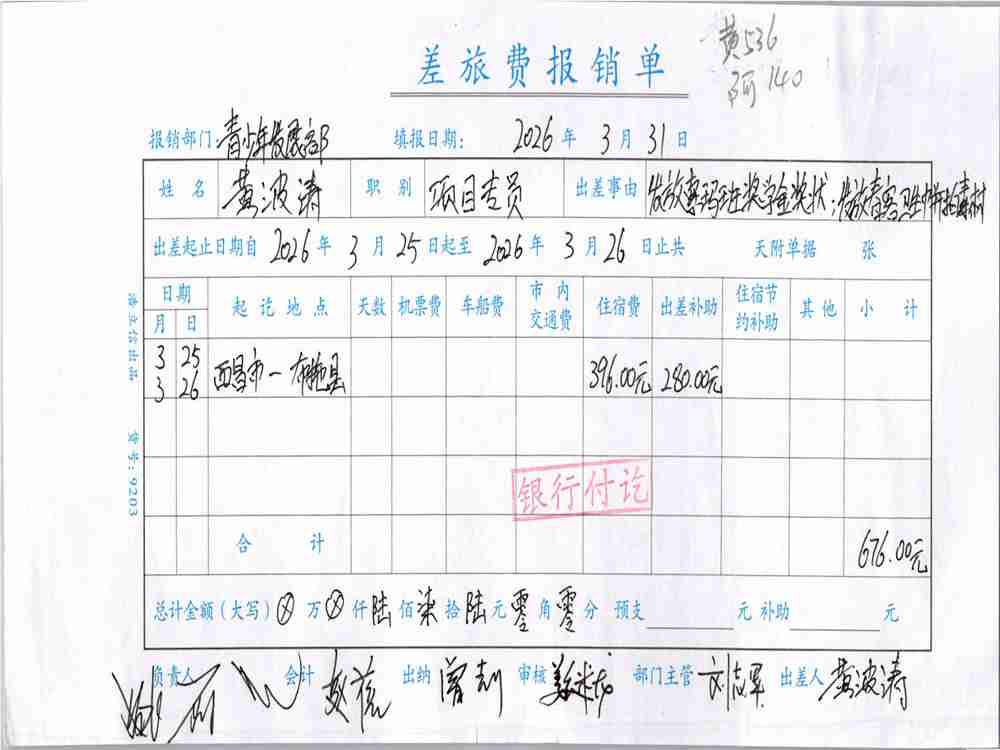 黄536
阿140
差旅费报销单
报销部门: 青少年发展部 填报日期: 2026 年 3 月 31 日
姓名 黄波涛 职别 项目专员 出差事由
出差起止日期自 2026 年 3 月 25 日起至 2026 年 3 月 26 日止共 天附单据 张
日期 起讫地点 天数 机票费 车船费 市内交通费 住宿费 出差补助 住宿节约补助 其他 小计
月 日
3 25
3 26 西昌市一布拖县 396.00元 280.00元
银行付讫
合计 676.00元
总计金额(大写) ⊗ 万 ⊗ 仟 陆 佰 柒 拾 陆 元 零 角 零 分 预支 元 补助 元
负责人 会计 出纳 审核 部门主管 刘志军 出差人 黄波涛
货号:9203